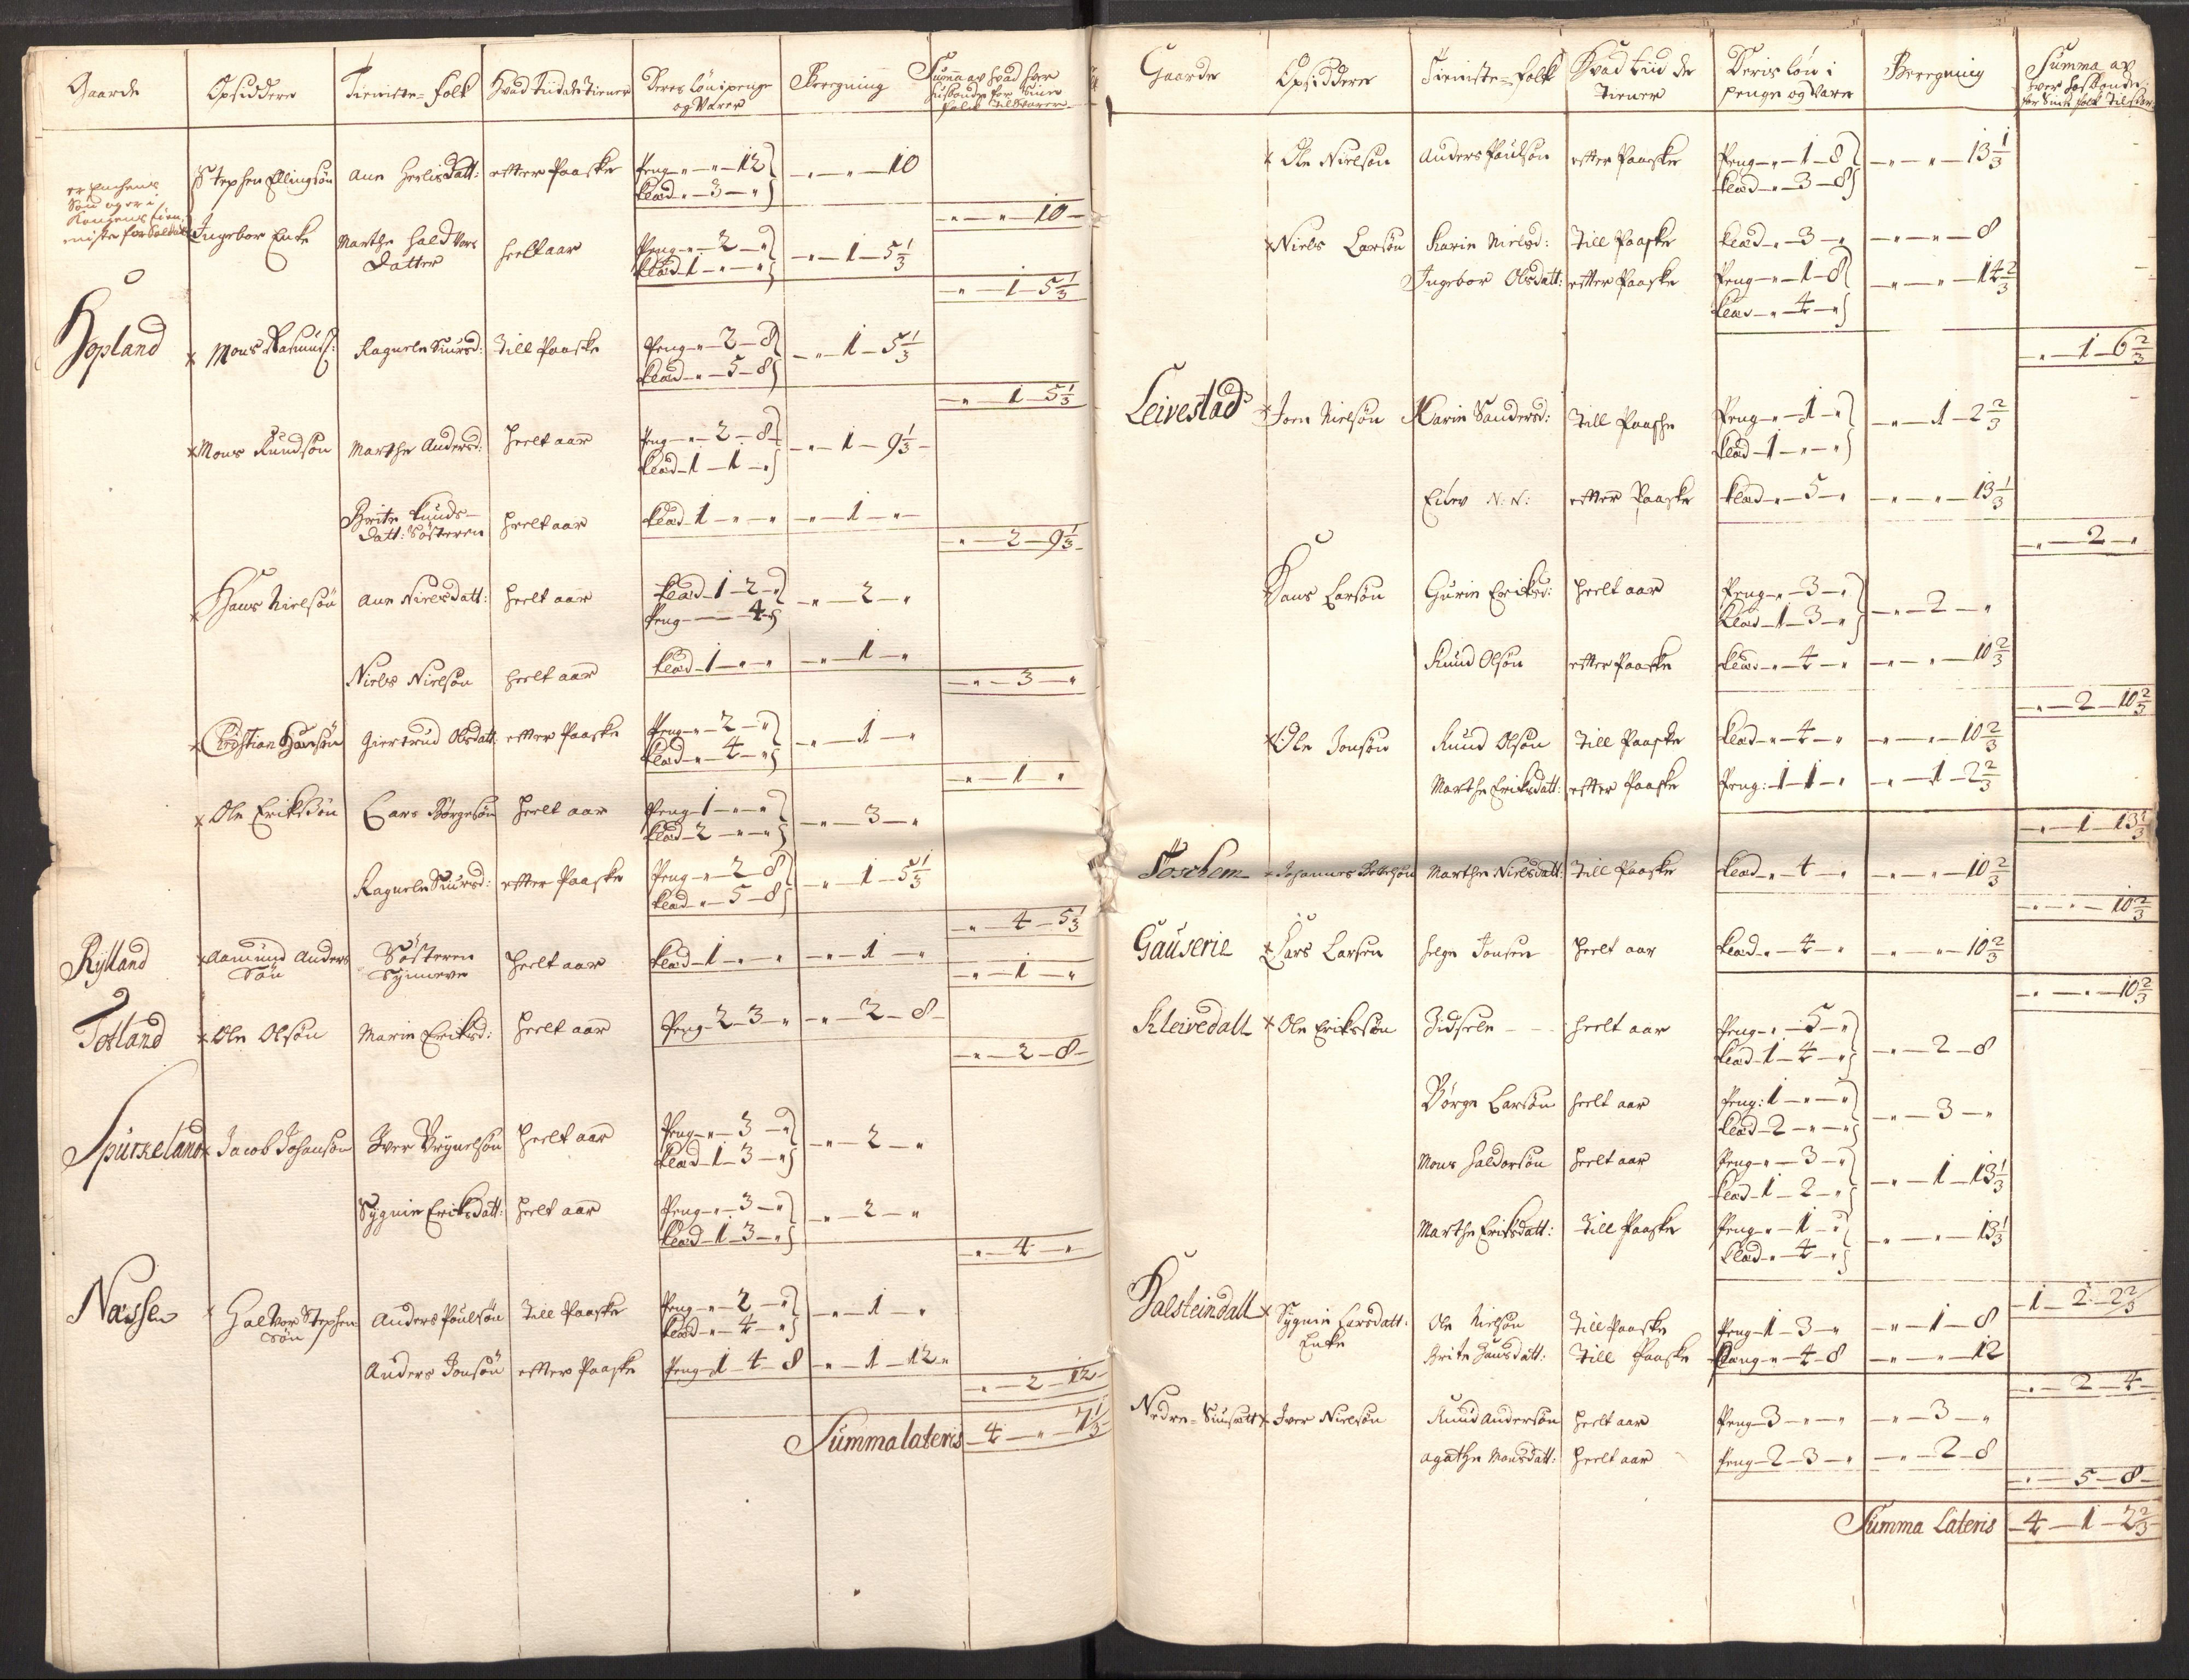 Gaarde Opsiddere Tieniste-folk Hvad Tiid de Tiener Deres løn i penge og Varer Beregning Summa av hvad hver husbonde for sine folck tilsvarer
er Enchens Søn og er i Kongens tieniste for Soldat
Stephen Ellingsøn Ann Herlisdatt: efter Paaske Peng - " - " - 12 Klæd - " - 3 - " - " - " - 10
- " - " - 10 -
Ingebor Enke Marthe Haldvors Datter heelt aar Peng - " - 2 - " Klæd - 1 - " - " - " - 1 - 5 1/3
- " - 1 - 5 1/3
Hopland
x Mons Rasmuss: Ragnele Siursd: Till Paaske Peng - " - 2 - 8 Klæd - " - 5 - 8 - " - 1 - 5 1/3
- " - 1 - 5 1/3
x Mons Knudsøn Marthe Andersd: heelt aar Peng - " - 2 - 8 Klæd - 1 - 1 - " - " - 1 - 9 1/3 -
Brite Knuds-
Datt: Søsteren heelt aar Klæd - 1 - " - " - " - 1 - " -
- " - 2 - 9 1/3 -
x Hans Nielsøn Ann Nielsdatt: heelt aar Klæd - 1 - 2 - " Peng - - - 4 - " - 2 - "
Niels Nielsøn heelt aar Klæd - 1 - " - " - " - 1 - "
- " - 3 - "
x Christian Hansøn Giertrud Olsdatt: efter Paaske Peng - " - 2 - " Klæd - " - 4 - " - " - 1 - "
- " - 1 - "
x Ole Eriksøn Lars Børgesøn heelt aar Peng - 1 - " - " Klæd - 2 - " - " - " - 3 - "
Ragnele Siursd: efter Paaske Peng - " - 2 - 8 Klæd - " - 5 - 8 - " - 1 - 5 1/3
- " - 4 - 5 1/3
Rylland x Aamund Anders Søn Søsteren Synneve heelt aar Klæd - 1 - " - " - " - 1 - "
- " - 1 - "
Totland x Ole Olsøn Marin Eriksd: heelt aar Peng - 2 - 3 - " - " - 2 - 8 -
- " - 2 - 8 -
Spurkeland x Jacob Johansøn Iver Brynelsøn heelt aar Peng - " - 3 - " Klæd - 1 - 3 - " - " - 2 - "
Sygnin Eriksdatt: heelt aar Peng - " - 3 - " Klæd - 1 - 3 - " - " - 2 - "
- " - 4 - "
Næsse x Halvor Stephen Søn Anders Poulsøn Till Paaske Peng - " - 2 - " Klæd - " - 4 - " - " - 1 - "
Anders Jonsøn efter Paaske Peng - 1 - 4 - 8 - " - 1 - 12 -
- " - 2 - 12 -
Summa lateris - 4 - " - 7 1/3
Gaarde Opsiddere Tieniste-folk Hvad tiid de Tiener Deris løn i penge og Vare Beregning Summa av hver hosbonde for Sine folk tilsvar:
x Ole Nielsøn Anders Poulsøn efter Paaske Peng - " - 1 - 8 Klæd - " - 3 - 8 - " - " - 13 1/3
x Niels Larsøn Karin Nielsd: Till Paaske Klæd - " - 3 - " - " - " - 8
Ingebor Olsdatt: efter Paaske Peng - " - 1 - 8 Klæd - " - 4 - " - " - " - 14 2/3
- " - 1 - 6 2/3
Leivestad x Joen Nielsøn Karin Sandersd: Till Paaske Peng - " - 1 - " Klæd - 1 - " - " - " - 1 - 2 2/3
Eilev N: N: efter Paaske Klæd - " - 5 - " - " - " - 13 1/3
- " - 2 - "
Hans Larsøn Gurin Eriksd: heelt aar Peng - " - 3 - " Klæd - 1 - 3 - " - " - 2 - "
Knud Olsøn efter Paaske Klæd - " - 4 - " - " - " - 10 2/3
- " - 2 - 10 2/3
x Ole Jonsøn Knud Olsøn Till Paaske Klæd - " - 4 - " - " - " - 10 2/3
Marthe Eriksdatt: efter Paaske Peng: 1 - 1 - " - " - 1 - 2 2/3
- " - 1 - 13 1/3
Toschem Johannes Marthe Nielsdatt: Till Paaske Klæd - " - 4 - " - " - " - 10 2/3
- " - " - 10 2/3
Gauserie x Lars Larsen Helge Jonsen heelt aar Klæd - " - 4 - " - " - " - 10 2/3
- " - " - 10 2/3
Kleivedall x Ole Eriksøn Zidsele - - heelt aar Peng - " - 5 - " Klæd - 1 - 4 - " - " - 2 - 8
Børge Larsøn heelt aar Peng: 1 - " - " Klæd - 2 - " - " - " - 3 - "
Mons Haldorsøn heelt aar Peng - " - 3 - " Klæd - 1 - 2 - " - " - 1 - 13 1/3
Marthe Eriksdatt: Till Paaske Peng - " - 1 - " Klæd - " - 4 - " - " - " - 13 1/3
- 1 - 2 - 2 2/3
Halsteindall x Sygnin Larsdatt: Enke Ole Nielsøn Till Paaske Peng - 1 - 3 - " - " - 1 - 8
Brite Hansdatt: Till Paaske Peng - " - 4 - 8 - " - " - 12
- " - 2 - 4 -
Nedre- x Iver Nielsøn Knud Andersøn heelt aar Peng - 3 - " - " - " - 3 - "
Agathe Monsdatt: heelt aar Peng - 2 - 3 - " - " - 2 - 8
- " - 5 - 8 -
Summa Lateris - 4 - 1 - 2 2/3